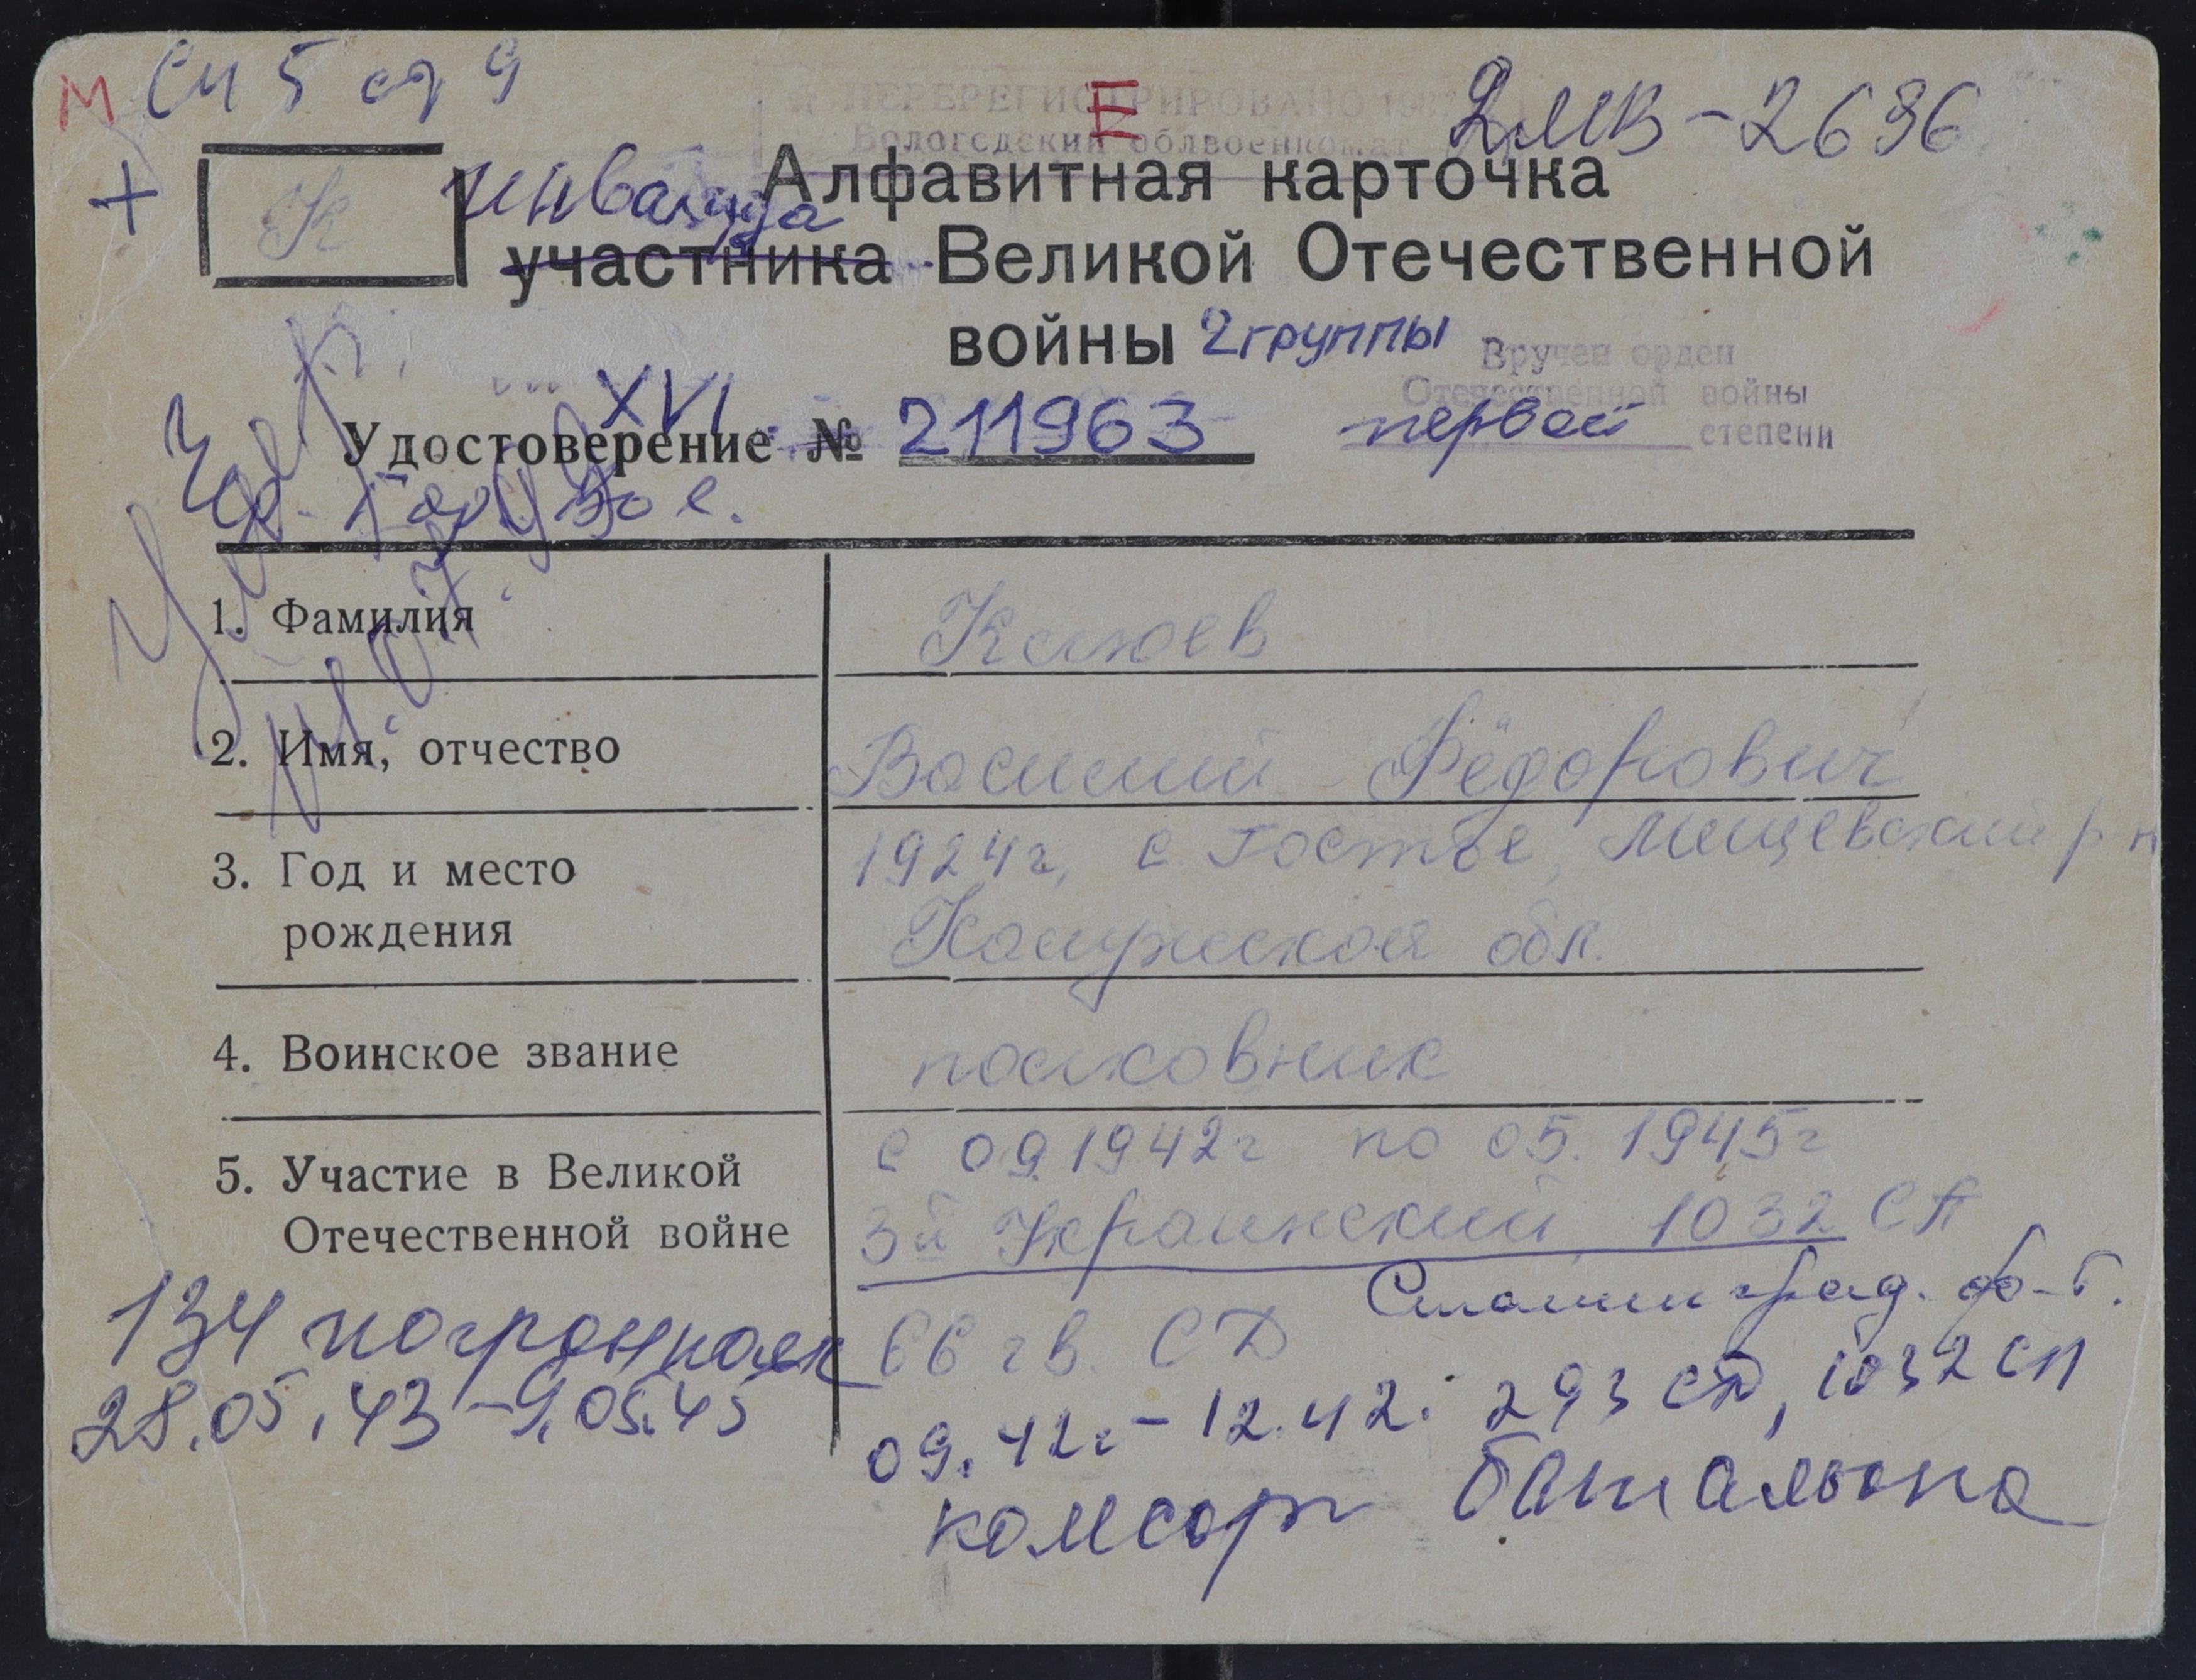 М Сп 5 ст 9
Е
ПЕРЕРЕГИСТРИРОВАНО
Вологодский облвоенкомат
2МВ-2696
+ К
инвалида
Алфавитная карточка
участника Великой Отечественной
войны 2 группы
Вручен орден
Отечественной войны
первой степени
XVI
Удостоверение № 211963
1. Фамилия
2. Имя, отчество
Василий Фёдорович
3. Год и место
рождения
1924г, с Гостье, Мещевский р н
Калужской обл.
4. Воинское звание
полковник
5. Участие в Великой
Отечественной войне
с 09.1942г по 05.1945г
3й Украинский 1032 СП
Сталинград. ф-т.
134 погранполк
28.05.43-9.05.45
66 гв. СД
09.42г-12.42: 293 СД, 1032 СП
комсорг батальона